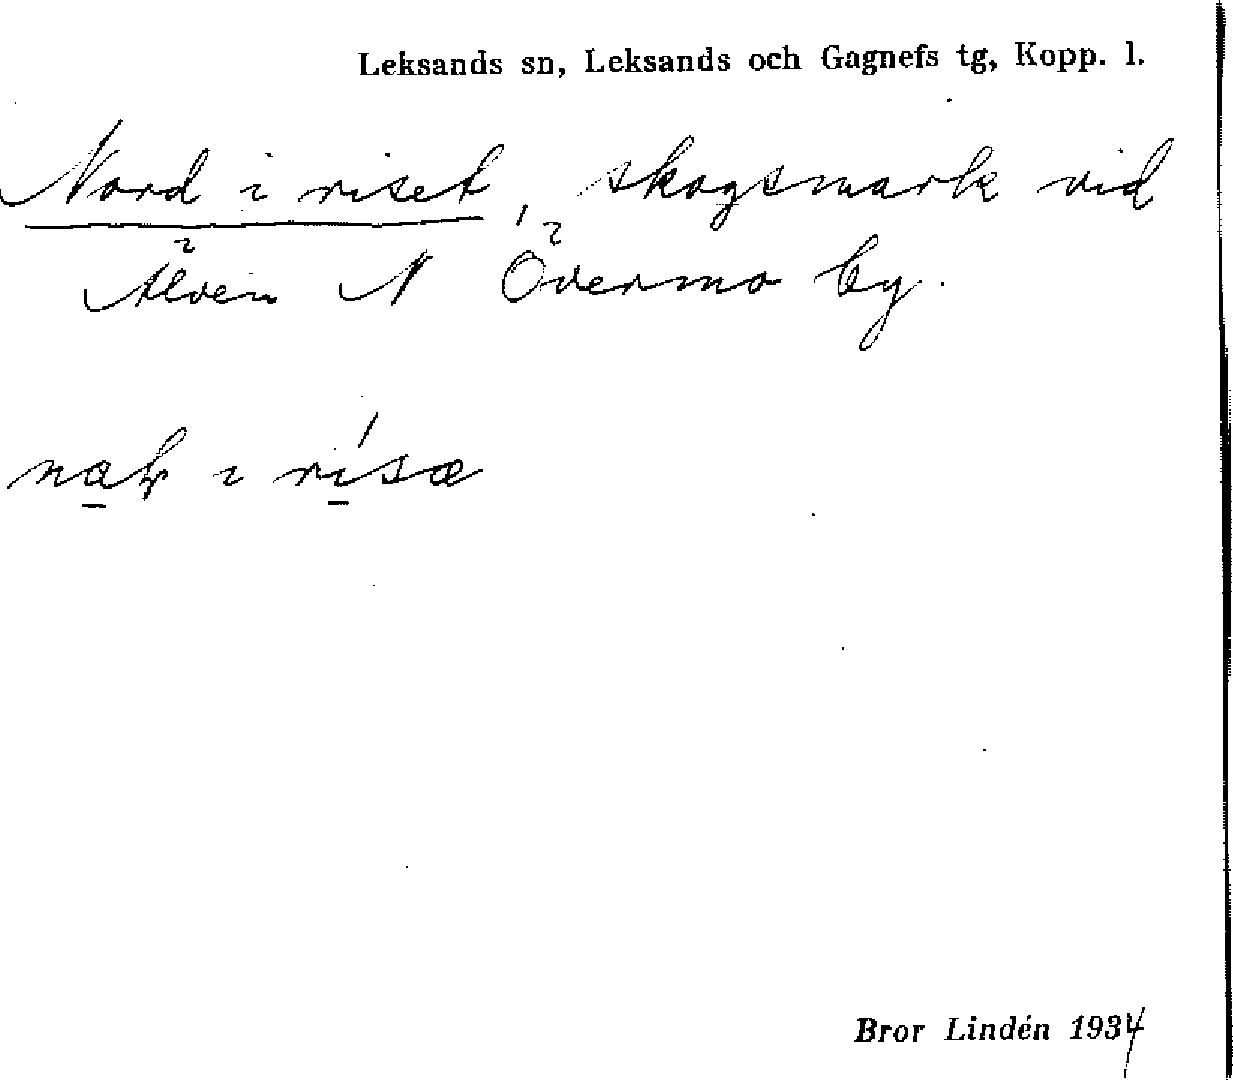 Leksands sn, Leksands och Gagnefs tg, Kopp. l.
Nord i riset, skogsmark vid
Älven N Övermo by.
i risæ
Bror Lindén 1934